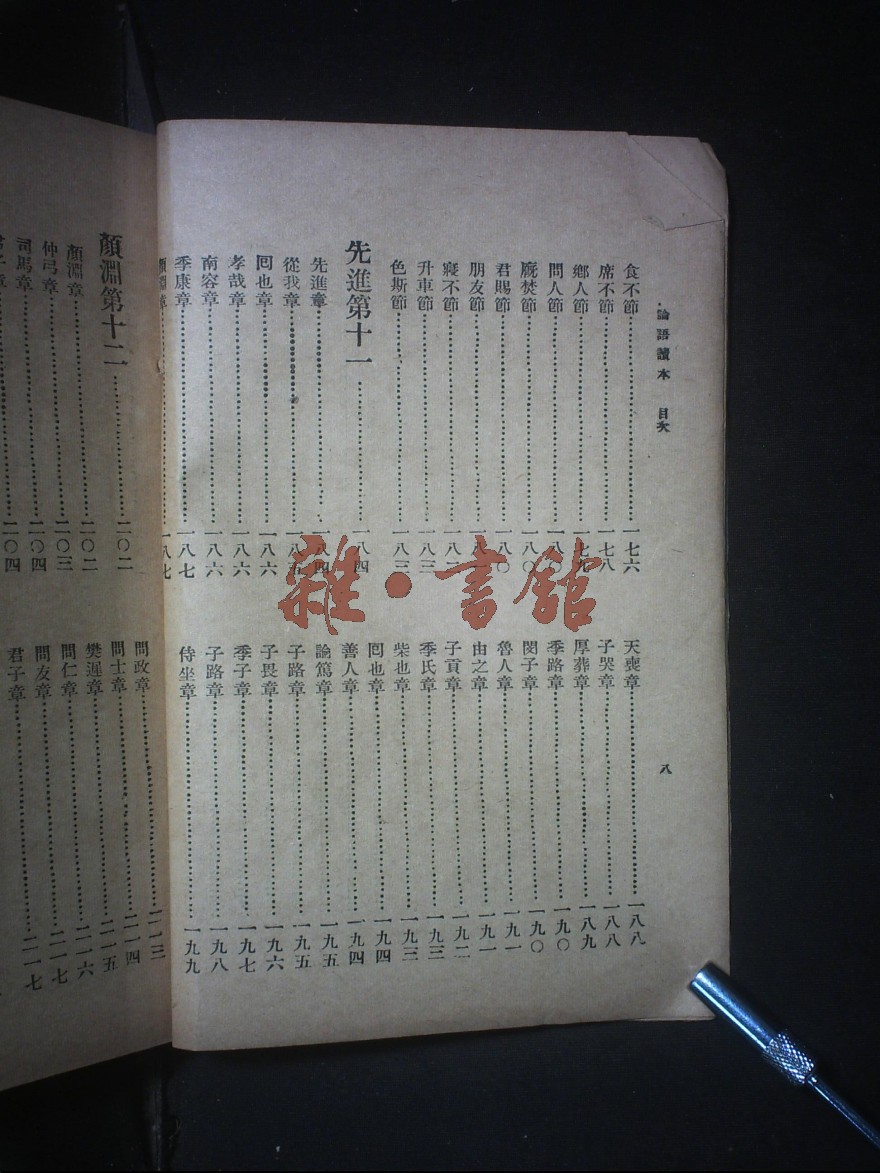 論語讀本 目次 八
食不節……一七六
席不節……一七八
鄉人節……一七九
問人節……一八〇
廄焚節……一八〇
君賜節……一八〇
朋友節……一八一
寢不節……一八二
升車節……一八三
色斯節……一八三
先進第十一……一八四
先進章……一八四
從我章……一八五
回也章……一八六
孝哉章……一八六
南容章……一八六
季康章……一八七
顏淵章……一八七
天喪章……一八八
子哭章……一八八
厚葬章……一八九
季路章……一九〇
閔子章……一九〇
魯人章……一九一
由之章……一九一
子貢章……一九二
季氏章……一九三
柴也章……一九三
回也章……一九四
善人章……一九四
論篤章……一九五
子路章……一九五
子畏章……一九六
季子章……一九七
子路章……一九八
侍坐章……一九九
顏淵第十二……二〇二
顏淵章……二〇二
仲弓章……二〇三
司馬章……二〇四
問政章……二一三
問士章……二一四
樊遲章……二一五
問仁章……二一六
問友章……二一七
君子章……二一七
雜·書館